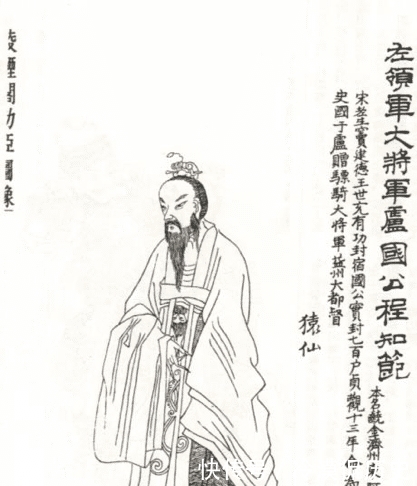 左領軍大將軍盧國公程知節
本名齩金濟州
宋老生竇建德王世充有功封宿國公實封七百户貞觀十三年
史國于盧贈驃騎大將軍益州大都督
猿仙
凌煙閣功臣圖像
快